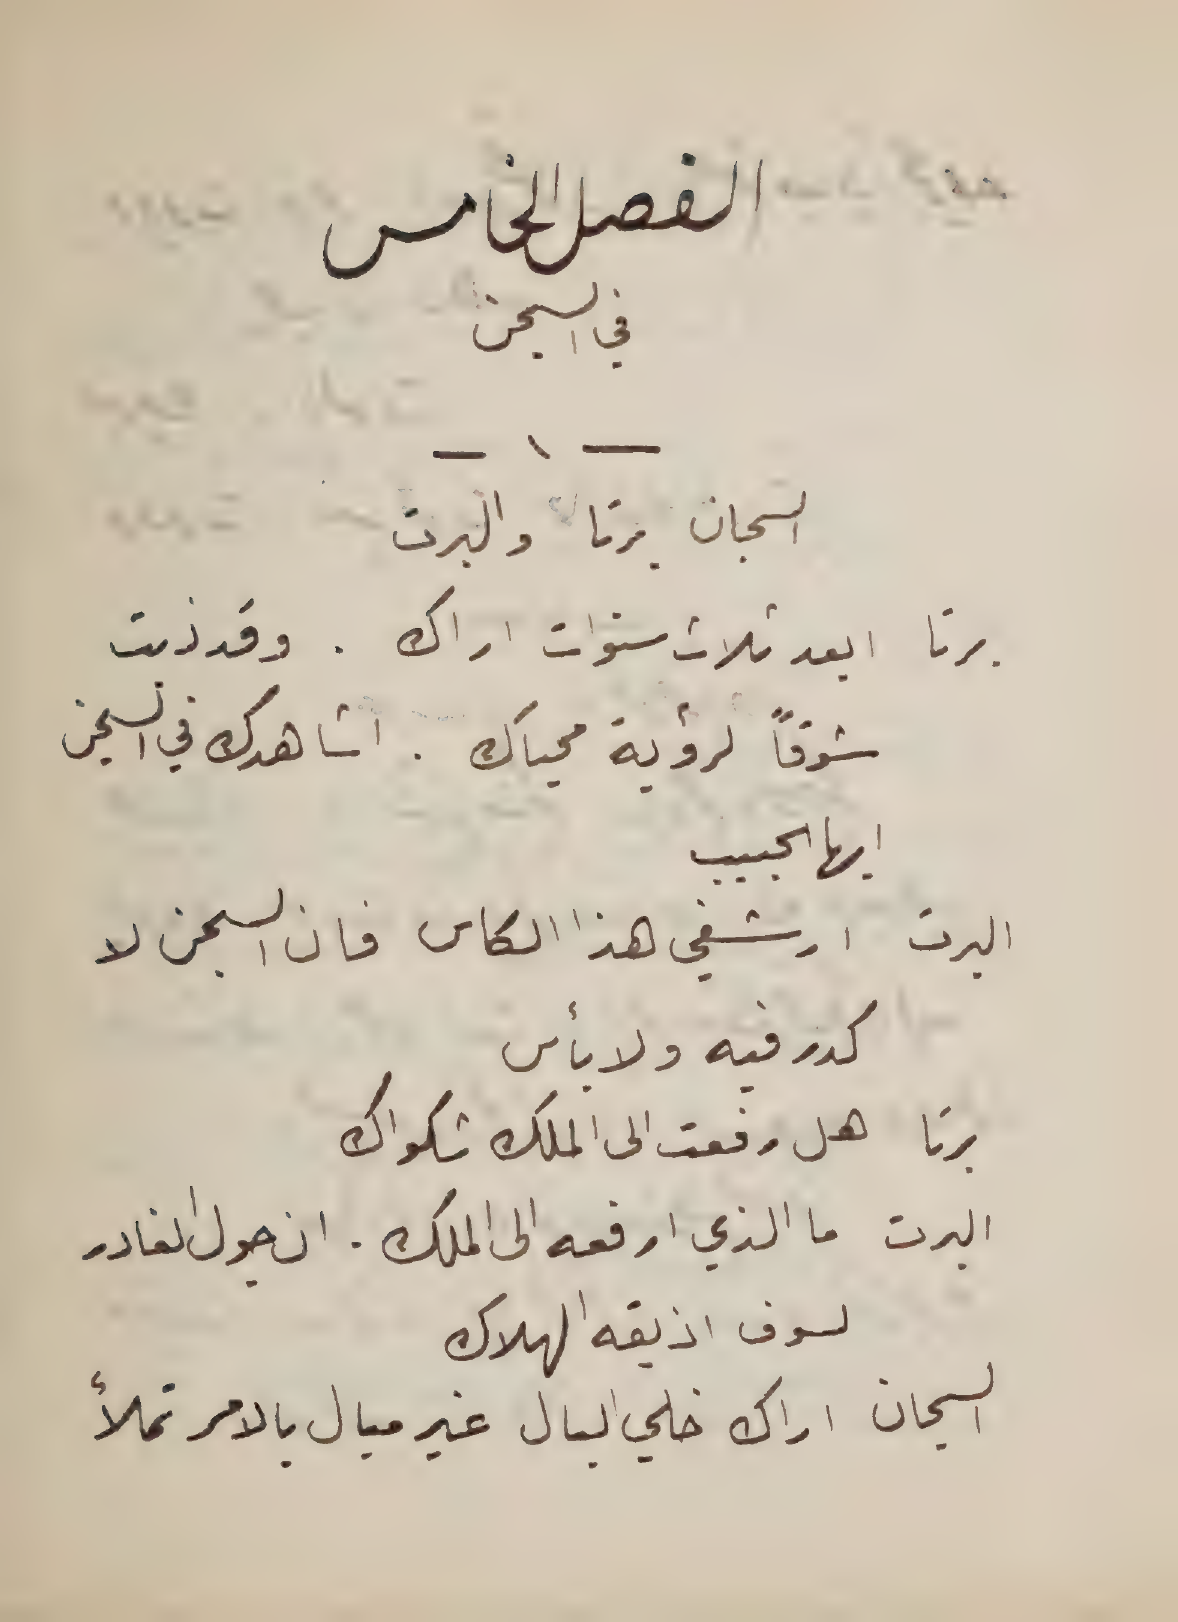 الفصل الخامس
في السجن
— ١ —
السجان برتا والبرت
برتا ابعد ثلاث سنوات اراك . وقد ذبت
شوقاً لرؤية محياك . اشاهدك في السجن
ايها الحبيب
البرت ارشفي هذا الكاس فان السجن لا
كدر فيه ولا بأس
برتا هل رفعت الى الملك شكواك
البرت ما الذي ارفعه الى الملك . ان جول الغادر
لسوف اذيقه الهلاك
السجان اراك خلي البال غير مبال بالامر تملأ